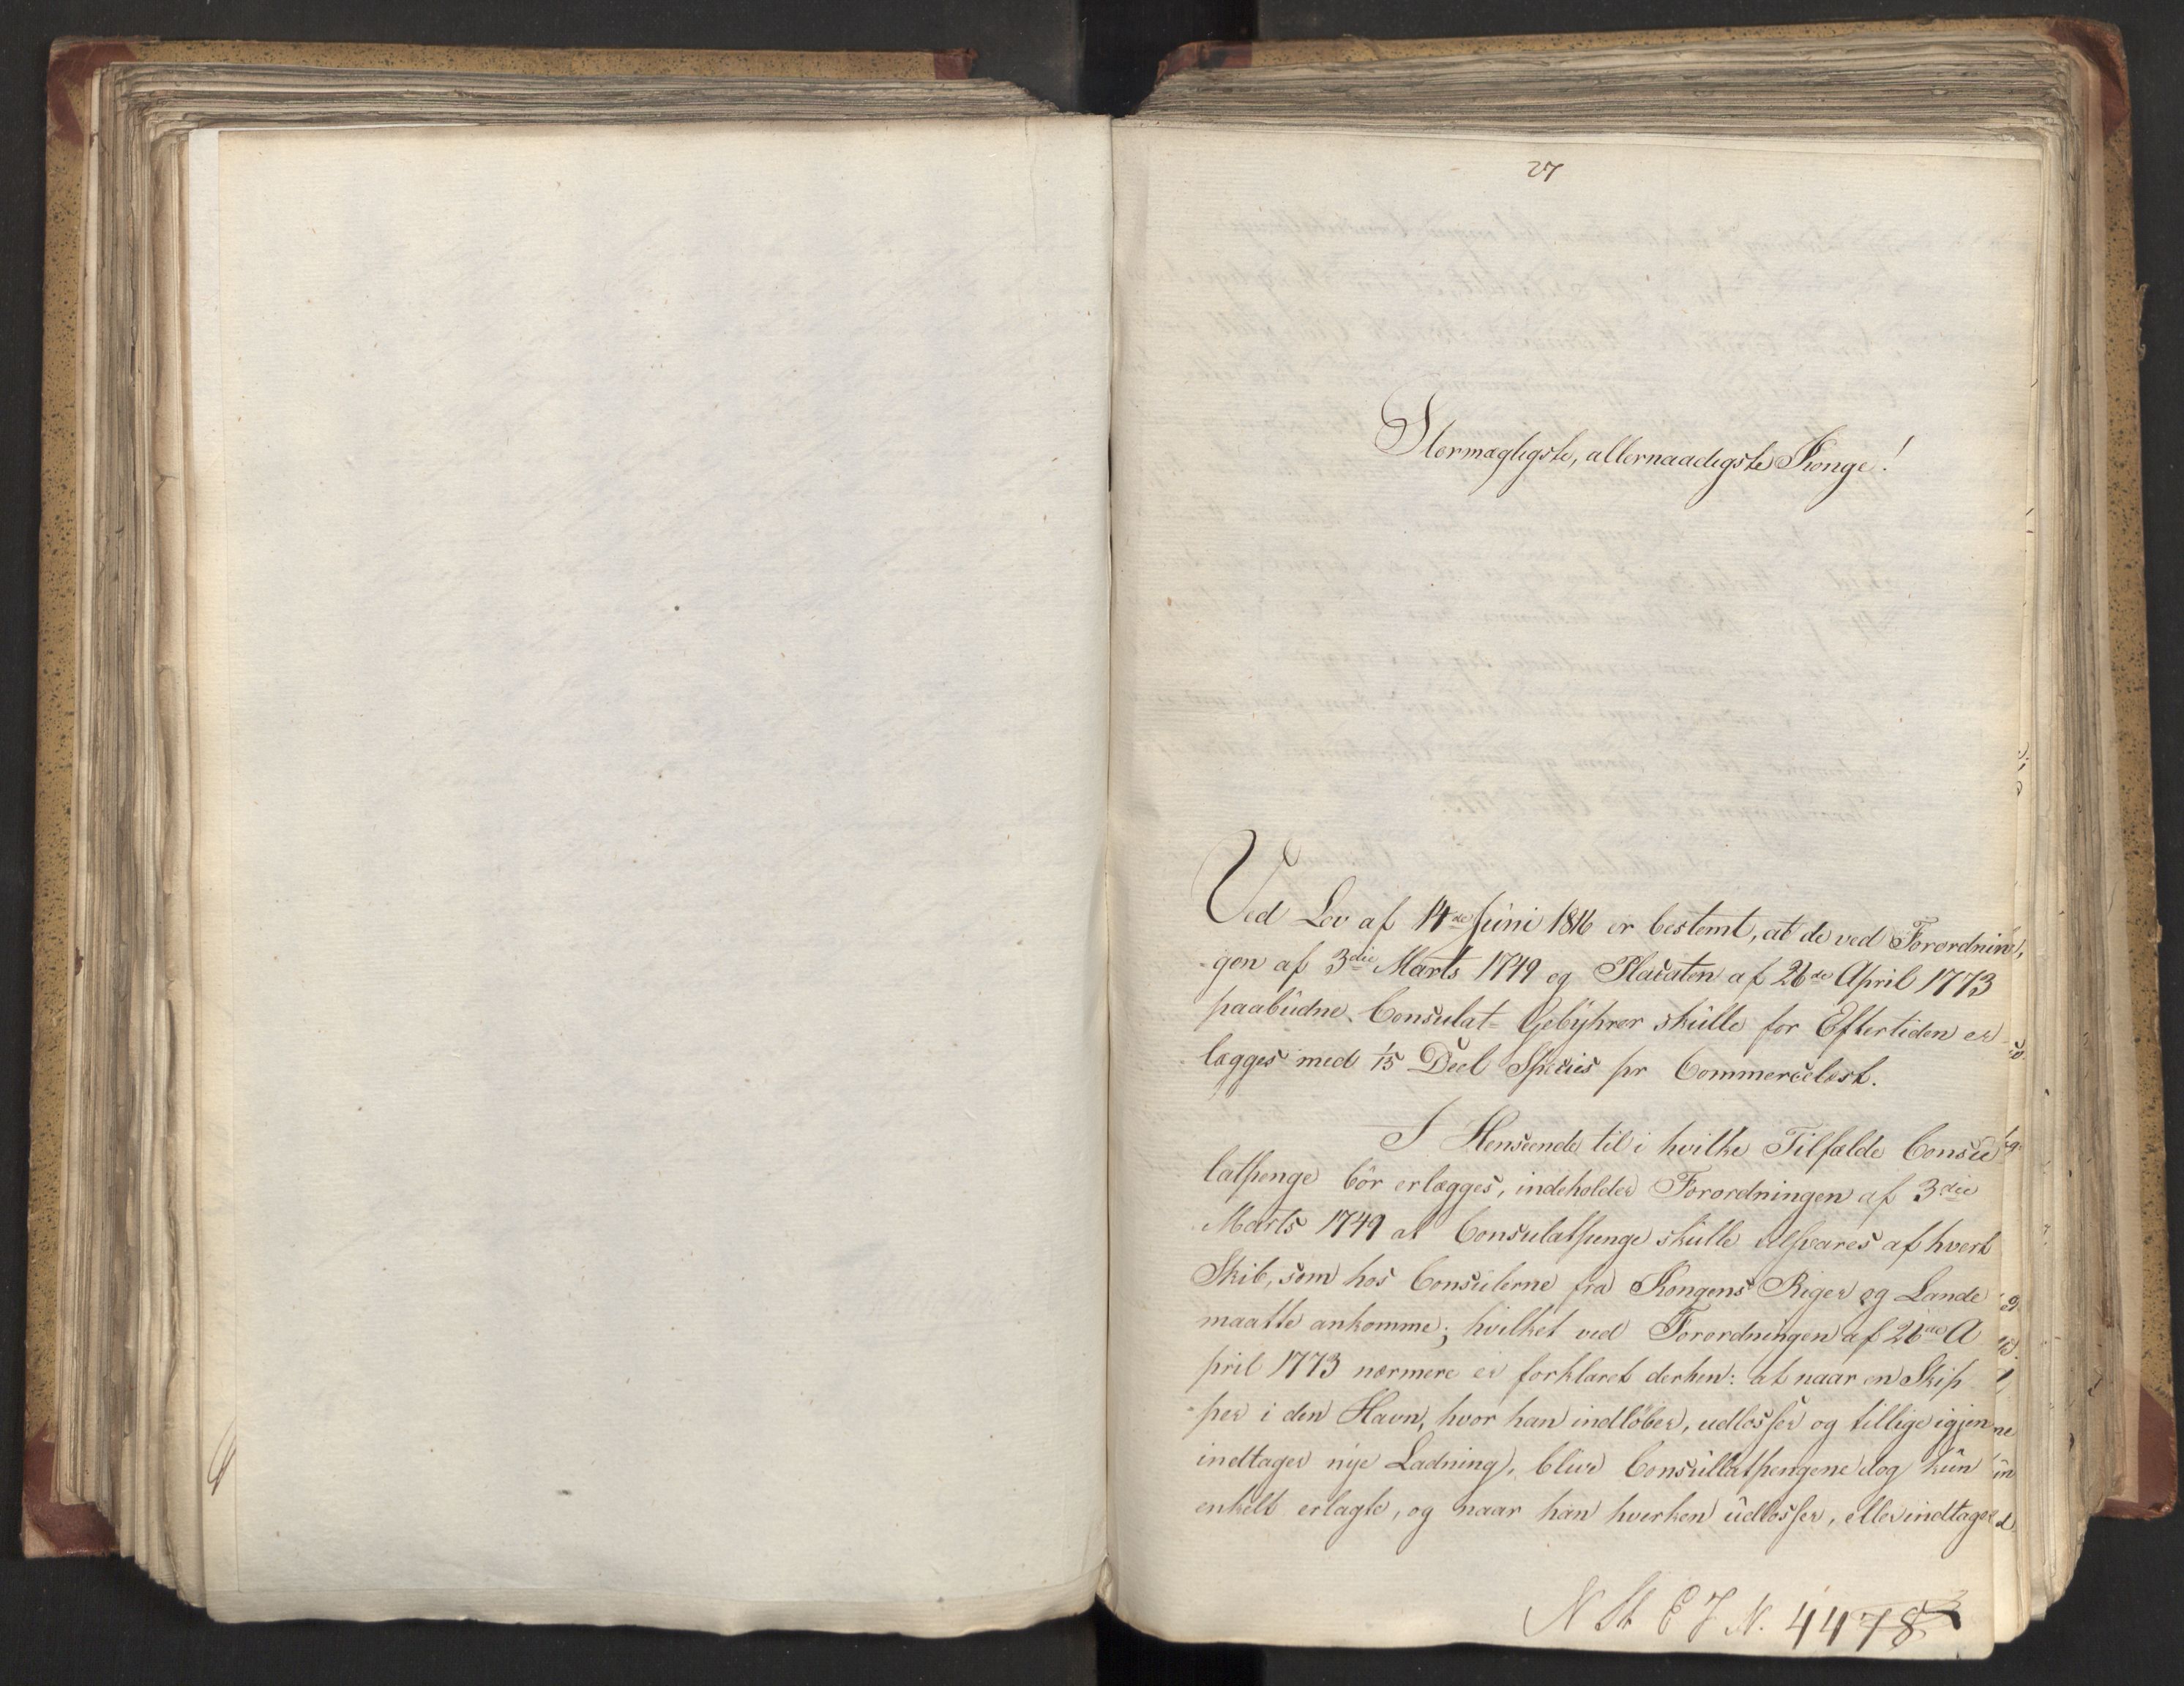 27
Stormægtigste, allernaadigste Konge!
Ved Lov af 14de Juni 1816 er bestemt, at de ved Forordnin,
gen af 3die Marts 1749 og Placaten af 26de April 1773
paabudne Consulat-Gebyhrer skulle for Eftertiden er
lægges med 1/15 Deel Species pr Commercelæst.
I Henseende til i hvilke Tilfælde Consu
latpenge bör erlægges, indeholder Forordningen af 3die
Marts 1749 at Consulatpenge skulle tilsvares af hvert
Skib, som hos Consulerne fra Kongens Riger og Lande
maatte ankomme; hvilket ved Forordningen af 26de A
pril 1773 nærmere er forklaret derhen: at naar en Skip
per i den Havn, hvor han indlöber, udlosser og tillige igjen
indtager nye Ladning, blive Consullatpengene dog kun
enkelt erlagte, og naar han hverken udlosser, eller indtager
N St E J N. 4478